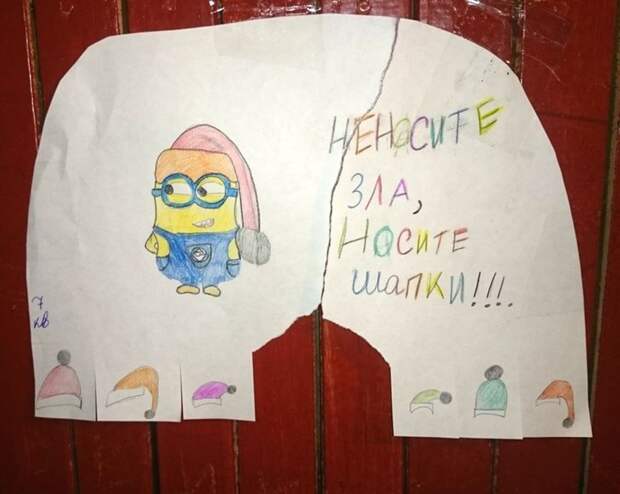 НЕНОСИТЕ
ЗЛА,
НОСИТЕ
ШАПКИ!!!.
7
кв